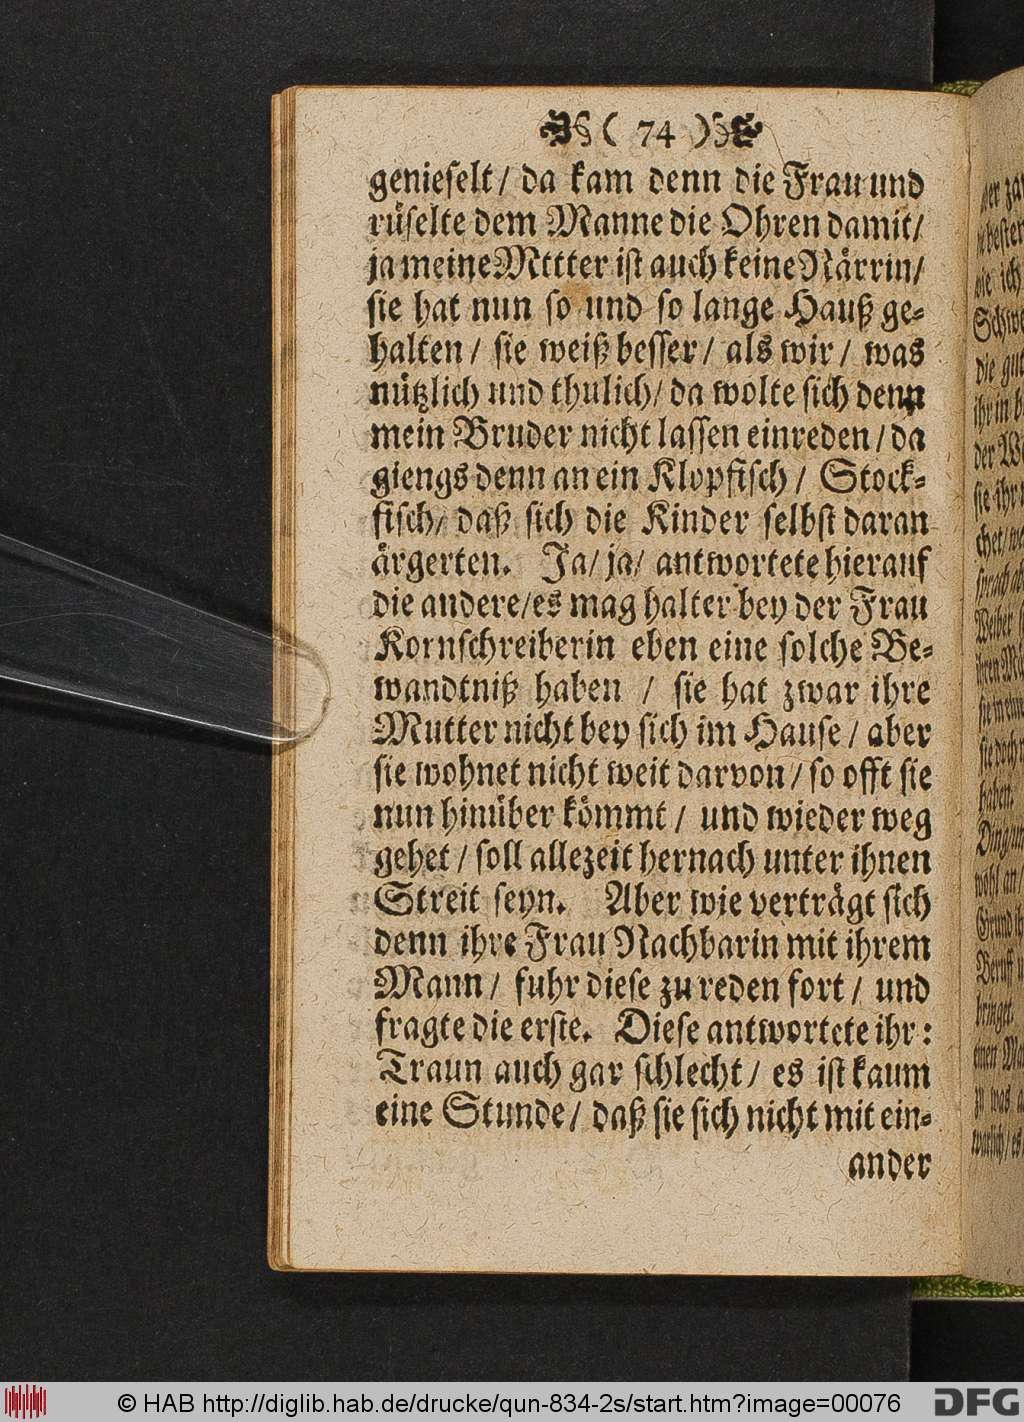 ( 74 )
genieselt/ da kam denn die Frau und
rüselte dem Manne die Ohren damit/
ja meine Mttter ist auch keine Närrin/
sie hat nun so und so lange Hauß ge-
halten/ sie weiß besser/ als wir/ was
nützlich und thulich/ da wolte sich denn
mein Bruder nicht lassen einreden/ da
giengs denn an ein Klopfisch/ Stock-
fisch/ daß sich die Kinder selbst daran
ärgerten. Ja/ ja/ antwortete hierauf
die andere/ es mag halter bey der Frau
Kornschreiberin eben eine solche Be-
wandtniß haben / sie hat zwar ihre
Mutter nicht bey sich im Hause/ aber
sie wohnet nicht weit darvon/ so offt sie
nun hinüber kömmt/ und wieder weg
gehet/ soll allezeit hernach unter ihnen
Streit seyn. Aber wie verträgt sich
denn ihre Frau Nachbarin mit ihrem
Mann/ fuhr diese zu reden fort/ und
fragte die erste. Diese antwortete ihr:
Traun auch gar schlecht/ es ist kaum
eine Stunde/ daß sie sich nicht mit ein-
ander
© HAB http://diglib.hab.de/drucke/qun-834-2s/start.htm?image=00076
DFG